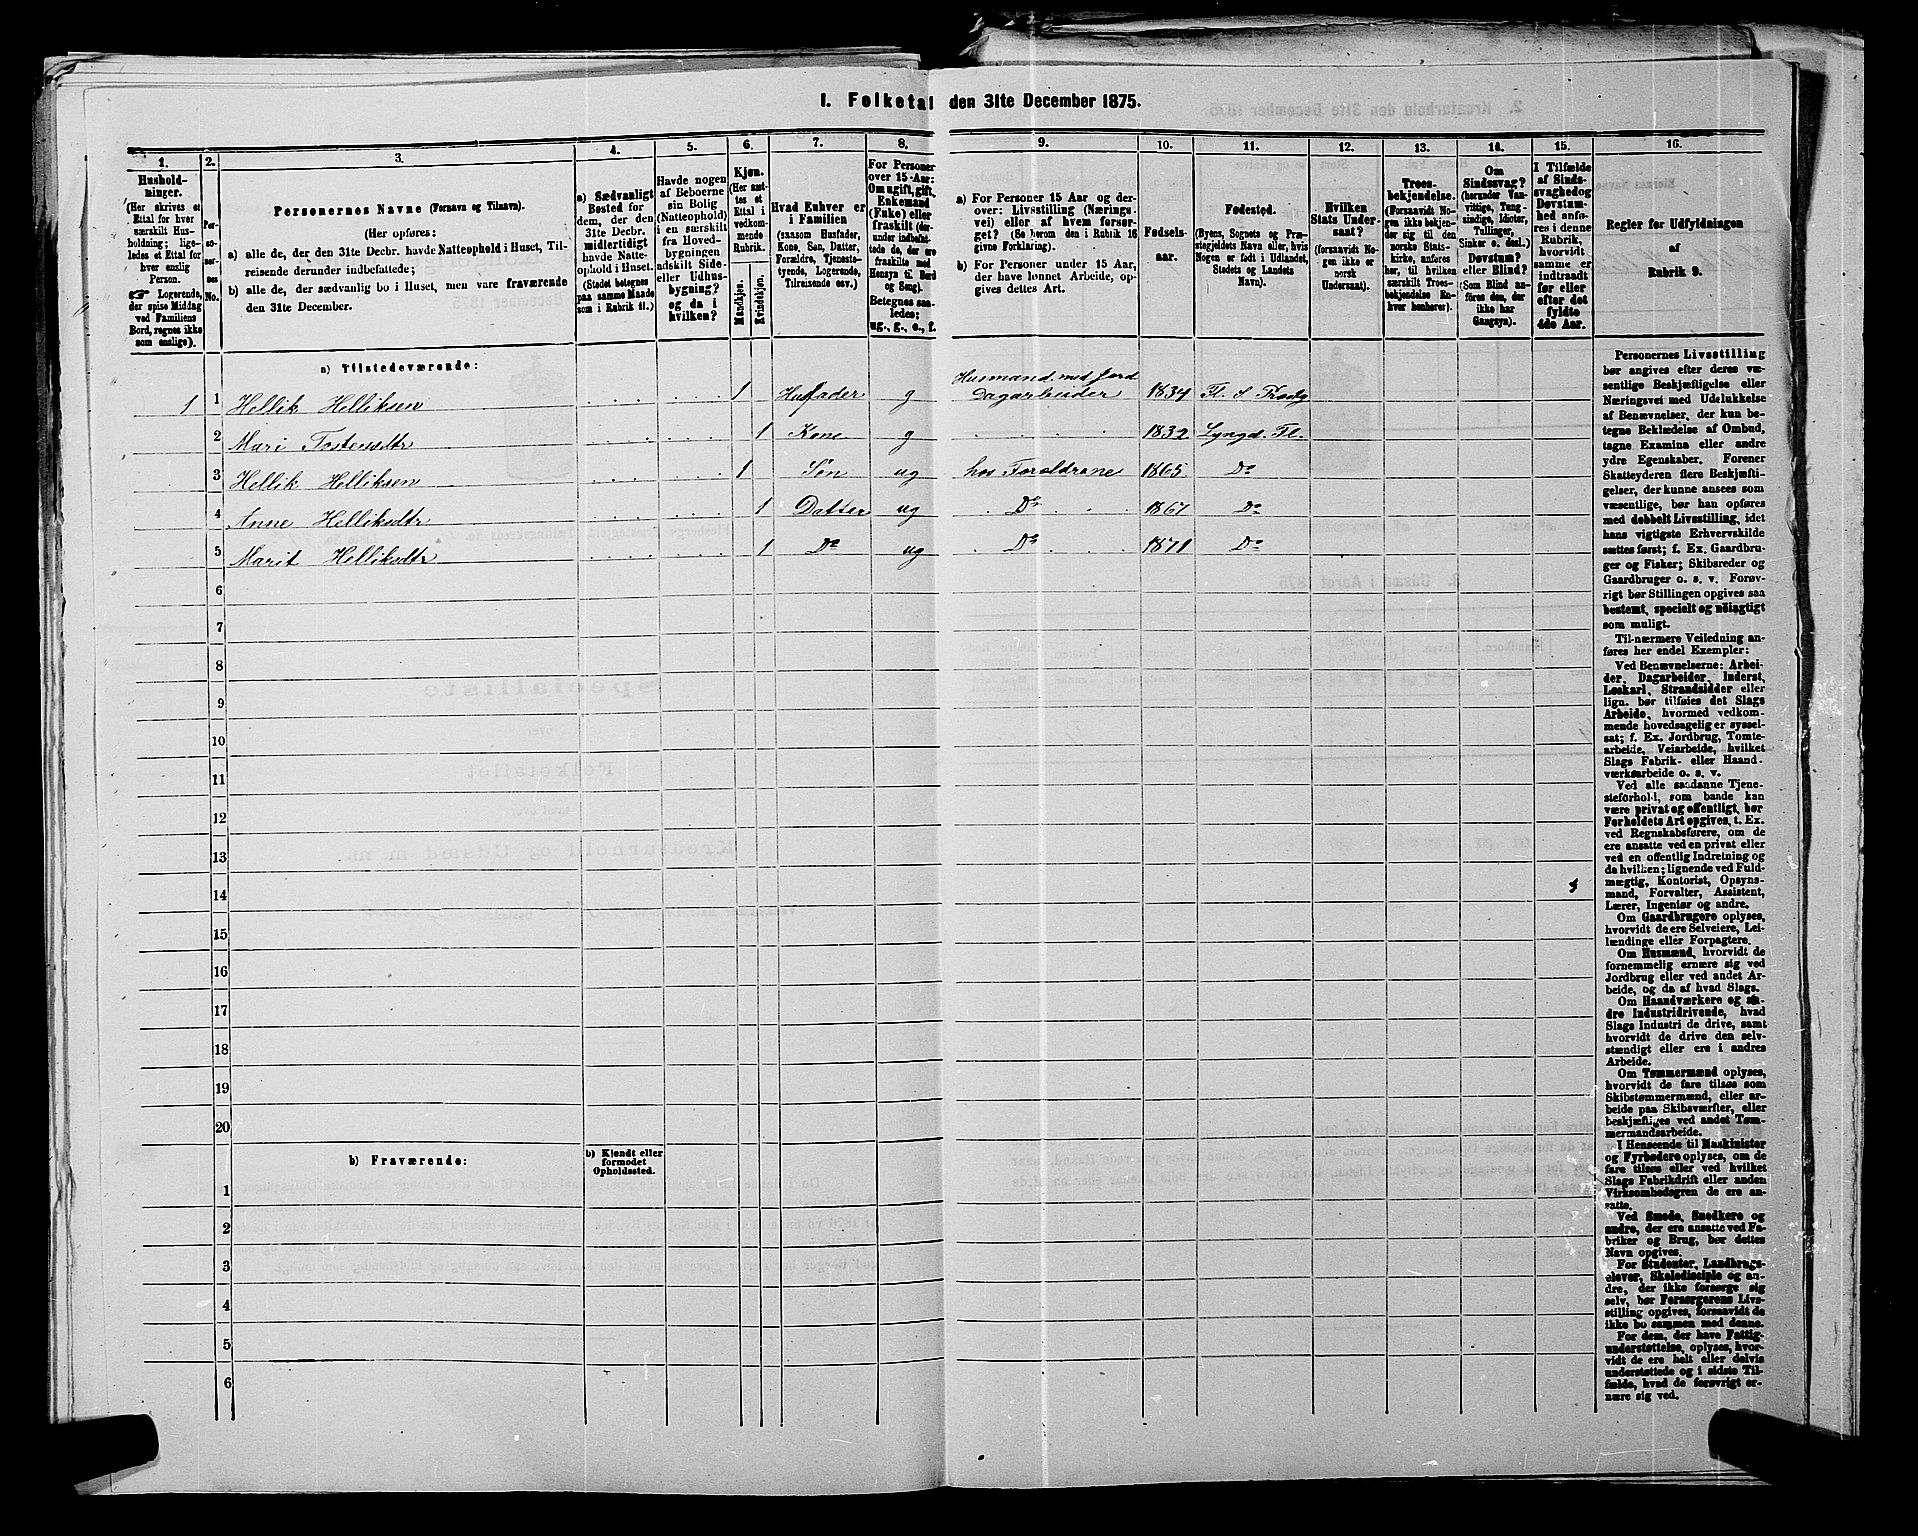 1. Folketal den 31te December 1875.
1.
Hushold-
ninger.
(Her skrives et
Ettal for hver
særskilt Hus-
holdning; lige-
ledes et Ettal for
hver enslig
Person.
☞ Logerende,
der spise Middag
ved Familiens
Bord, regnes ikke
som enslige).
2.
Per-
so-
ner-
nes
No.
3.
Personernes Navne (Fornavn og Tilnavn).
(Her opføres:
a) alle de, der den 31te Decbr. havde Natteophold i Huset, Til-
reisende derunder indbefattede;
b) alle de, der sædvanlig bo i Huset, men vare fraværende
den 31te December.
4.
a) Sædvanligt
Bosted for
dem, der den
31te Decbr.
midlertidigt
havde Natte-
ophold i Huset.
(Stedet betegnes
paa samme Maade
som i Rubrik 11.)
5.
Havde nogen
af Beboerne
sin Bolig
(Natteophold)
i en særskilt
fra Hoved-
bygningen
adskilt Side-
eller Udhus-
bygning?
og da i
hvilken?
6.
Kjøn.
(Her sæt-
tes et
Ettal i
vedkom-
mende
Rubrik.
Mandkjøn.
Kvindekjøn.
7.
Hvad Enhver er
i Familien
(saasom Husfader,
Kone, Søn, Datter,
Forældre, Tjeneste-
tyende, Logerende,
Tilreisende osv.)
8.
For Personer
over 15 Aar:
Om ugift, gift,
Enkemand
(Enke) eller
fraskilt (der-
under indbefat-
tede de, der ere
fraskilte med
Hensyn til Bord
og Seng).
Betegnes saa-
ledes:
ug., g., e., f.
9.
a) For Personer 15 Aar og der-
over: Livsstilling (Nærings-
vei) eller af hvem forsør-
get? (Se herom den i Rubrik 16
givne Forklaring).
b) For Personer under 15 Aar,
der have lønnet Arbeide, op-
gives dettes Art.
10.
Fødsels-
aar.
11.
Fødested.
(Byens, Sognets og Præ-
stegjeldets Navn eller, hvis
Nogen er født i Udlandet,
Stedets og Landets
Navn).
12.
Hvilken
Stats Under-
saat?
(forsaavidt No-
gen ikke er
norsk
Undersaat).
13.
Troes-
bekjendelse.
(Forsaavidt No-
gen ikke bekjen-
der sig til den
norske Stats-
kirke, anføres
her, til hvilken
særskilt Troes-
bekjendelse En-
hver henhører).
14.
Om
Sindssvag?
(herunder Van-
vittige, Tung-
sindige, Idioter,
Tullinger,
Sinker o. desl.)
Døvstum?
eller Blind?
(Som Blind an-
føres den, der
ikke har
Gangsyn).
15.
I Tilfælde
af Sinds-
svaghed og
Døvstum-
hed anfø-
res i denne
Rubrik,
hvorvidt
samme er
indtraadt
før eller
efter det
fyldte
4de Aar.
16.
Regler for Udfyldningen
af
Rubrik 9.
a) Tilstedeværende:
1 1 Hellik Helliksen 1 Husfader g Husmand med Jord Dagarbeider 1834 Fl. S
2 Mari Tostensdtr 1 Kone g 1832 Lyngd. Fl.
3 Hellik Helliksen 1 Søn ug hos Forældrene 1865 Do
4 Anne Helliksdtr 1 Datter ug Do 1867 Do
5 Marit Helliksdtr 1 Do ug Do 1871 Do
6
7
8
9
10
11
12
13
14
15
16
17
18
19
20
b) Fraværende:
b) Kjendt eller
formodet
Opholdssted.
1
2
3
4
5
6
Personernes Livsstilling
bør angives efter deres væ-
sentlige Beskjæftigelse eller
Næringsvei med Udelukkelse
af Benævnelser, der kun be-
tegne Beklædelse af Ombud,
tagne Examina eller andre
ydre Egenskaber. Forener
Skatteyderen flere Beskjæfti-
gelser, der kunne ansees som
væsentlige, bør han opføres
med dobbelt Livsstilling, idet
hans vigtigste Erhvervskilde
sættes først; f. Ex. Gaardbru-
ger og Fisker; Skibsreder og
Gaardbruger o. s. v. Forøv-
rigt bør Stillingen opgives saa
bestemt, specielt og nøiagtigt
som muligt.
Til nærmere Veiledning an-
føres her endel Exempler:
Ved Benævnelserne: Arbei-
der, Dagarbeider, Inderst,
Løskarl, Strandsidder eller
lign. bør tilføies det Slags
Arbeide, hvormed vedkom-
mende hovedsagelig er syssel-
sat; f. Ex. Jordbrug, Tomte-
arbeide, Veiarbeide, hvilket
Slags Fabrik- eller Haand-
værksarbeide o. s. v.
Ved alle saadanne Tjene-
steforhold, som baade kan
være privat og offentligt, bør
Forholdets Art opgives, t. Ex.
ved Regnskabsførere, om de
ere ansatte ved en privat eller
ved en offentlig Indretning og
da hvilken; lignende ved Fuld-
mægtig, Kontorist, Opsyns-
mand, Forvalter, Assistent,
Lærer, Ingeniør og andre.
Om Gaardbrugere oplyses,
hvorvidt de ere Selveiere, Lei-
lændinge eller Forpagtere.
Om Husmænd, hvorvidt de
fornemmelig ernære sig ved
Jordbrug eller ved andet Ar-
beide, og da af hvad Slags.
Om Haandværkere og an-
dre Industridrivende, hvad
Slags Industri de drive, samt
hvorvidt de drive den selv-
stændigt eller ere i andres
Arbeide.
Om Tømmermænd oplyses,
hvorvidt de fare tilsøs som
Skibstømmermænd, eller ar-
beide paa Skibsværfter, eller
beskjæftiges ved andet Tøm-
mermandsarbeide.
I Henseende til Maskinister
og Fyrbødere oplyses, om de
fare tilsøs eller ved hvilket
Slags Fabrikdrift eller anden
Virksomhedsgren de ere an-
satte.
Ved Smede, Snedkere og
andre, der ere ansatte ved Fa-
briker og Brug, bør dettes
Navn opgives.
For Studenter, Landbrugs-
elever, Skoledisciple og an-
dre, der ikke forsørge sig
selv, bør Forsørgerens Livs-
stilling opgives, forsaavidt de
ikke bo sammen med denne.
For dem, der have Fattig-
understøttelse, oplyses, hvor-
vidt de ere helt eller delvis
understøttede og i sidste Til-
fælde, hvad de forøvrigt er-
nære sig ved.